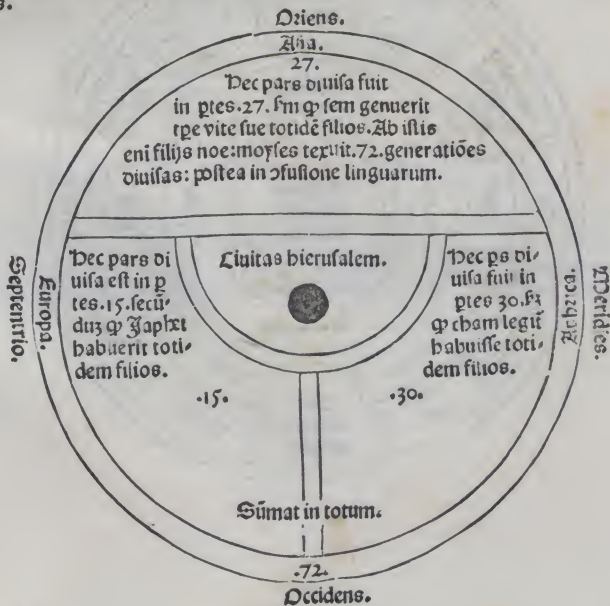 s.
Oriens.
Asia.
27.
Hec pars diuisa fuit
in ptes.27. ẜm ꝙ sem genuerit
tpe vite sue totidē filios. Ab istis
eni filijs noe: moyses texuit.72. generatiōes
diuisas: postea in ɔfusione linguarum.
Septentrio.
Europa.
Hec pars di
uisa est in p
tes.15. secū-
duʒ ꝙ Japhet
habuerit toti-
dem filios.
.15.
Ciuitas hierusalem.
Hec ps di-
uisa fuit in
ptes 30. ẜʒ
ꝙ cham legit̄
habuisse toti-
dem filios.
.30.
Affrica.
Meridies.
Sūmat in totum.
.72.
Occidens.